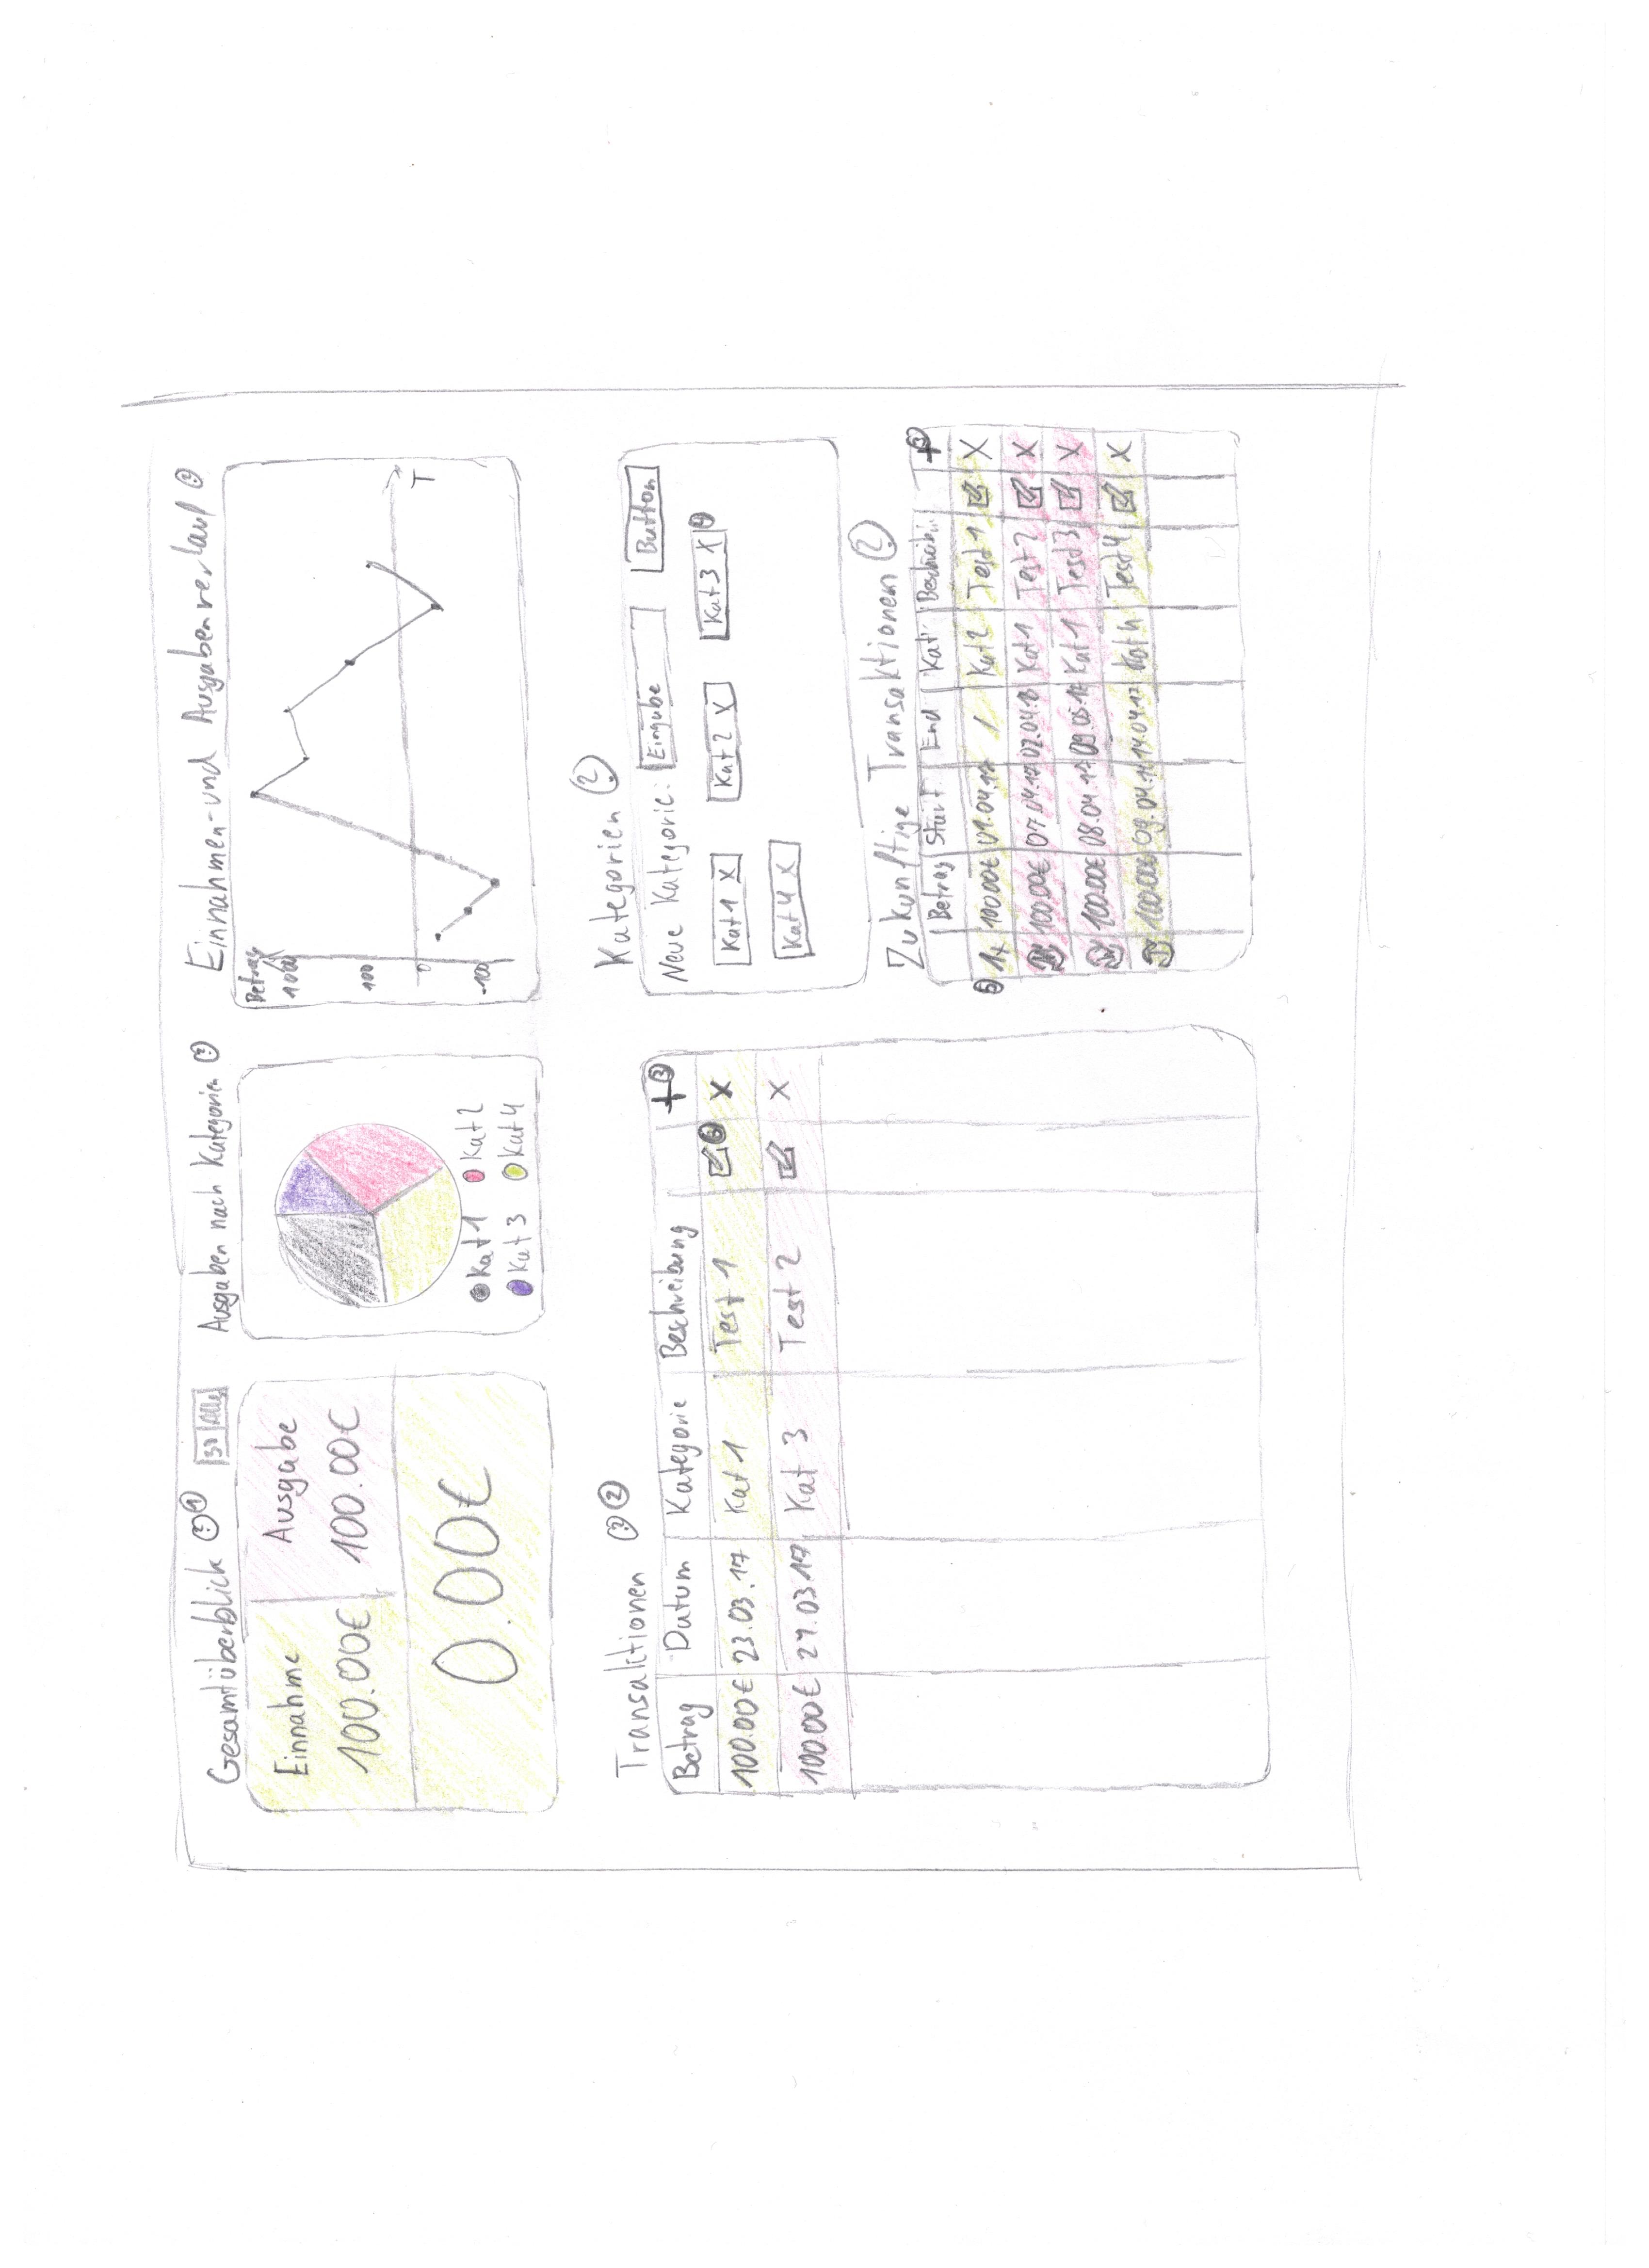 Gesamtüberblick ? 1
30 Alle
Einnahme
100.00€
Ausgabe
100.00€
0.00€
Ausgaben nach Kategorien ?
Kat 1 Kat 2
Kat 3 Kat 4
Einnahmen- und Ausgabenverlauf ?
Betrag
1000
100
0
-100
T
Transaktionen ? 2
Betrag Datum Kategorie Beschreibung + 3
100.00€ 23.03.17 Kat 1 Test 1 X
100.00€ 24.03.17 Kat 3 Test 2 X
Kategorien ?
Neue Kategorie: Eingabe Button
Kat 1 X Kat 2 X Kat 3 X 4
Kat 4 X
Zukunftige Transaktionen ?
Betrag Start End Kat. + 3
5 1x 100.00€ 01.04.17 / Kat 2 Test 1 X
100.00€ 07.04.17 02.04.18 Kat 1 Test 2 X
100.00€ 08.04.17 09.05.17 Kat 1 Test 3 X
100.00€ 09.04.17 14.04.17 Kat 4 Test 4 X